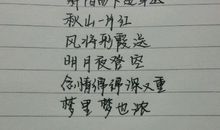 秋山一片红
风将形霞送
明月夜登空
念情得得深又重
梦里梦也浓